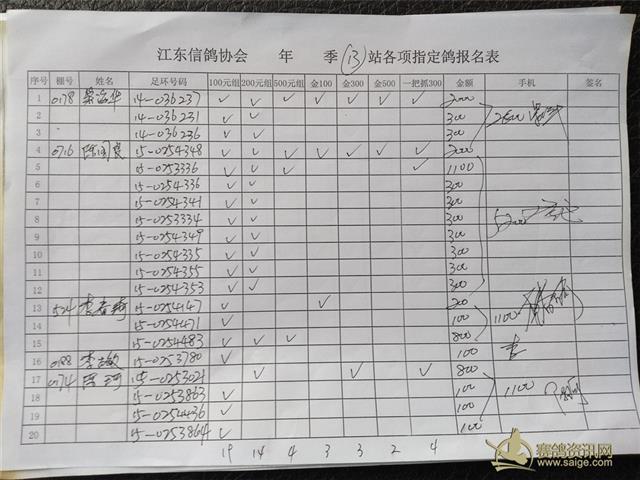 江东信鸽协会 年 季(13)站各项指定鸽报名表
序号 棚号 姓名 足环号码 100元组 200元组 500元组 金100 金300 金500 一把抓300 金额 手机 签名
1 0178 14-036237 ✓ ✓ ✓ ✓ ✓ ✓ ✓ 2000
2 14-036231 ✓ ✓ 300
3 14-036236 ✓ ✓ 300
4 0716 15-0254348 ✓ ✓ ✓ ✓ ✓ ✓ ✓ 2000
5 15-0253336 ✓ ✓ ✓ ✓ 1100
6 15-0254336 ✓ ✓ 300
7 15-0254341 ✓ ✓ 300
8 15-0253334 ✓ ✓ 300 5200
9 15-0254349 ✓ ✓ 300
10 15-0254335 ✓ ✓ 300
11 15-0254355 ✓ ✓ 300
12 15-0254353 ✓ ✓ 300
13 524 15-0254147 ✓ ✓ 200
14 15-0254471 ✓ 100 1100
15 15-0254483 ✓ ✓ ✓ 800
16 0188 李 敏 15-0253780 ✓ 100
17 0174 15-0253021 ✓ ✓ ✓ 800
18 15-0253863 ✓ 100 1100
19 15-0254436 ✓ 100
20 15-0253864 ✓ 100
19 14 4 3 3 2 4
赛鸽资讯网
www.saige.com